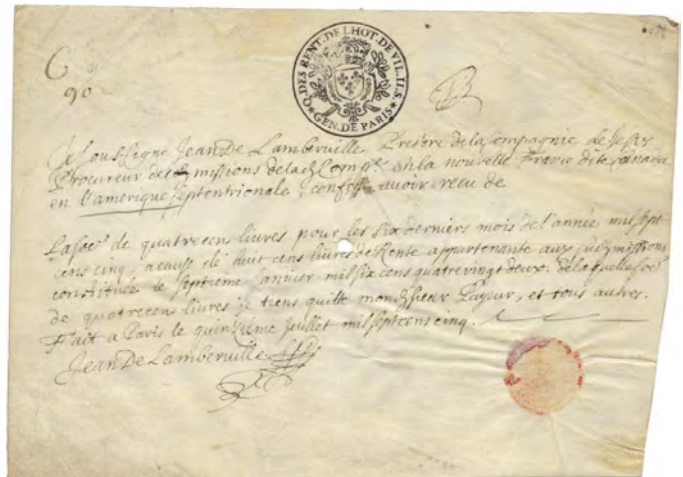 Q. DES RENT. DE LHOT. DE VIL. II.S.
GEN. DE PARIS
90
Je Sous Signe Jean De Lamberville Prestre de la Compagnie de Jesus
Procureur des missions de lad Compe en la nouvelle France dite Canada
en l'amerique septentrionale, confesse avoir receu de
La soe de quatre cens livres pour les six derniers mois de l'année mil sept
cens cinq, a cause de huit cens livres de Rente appartenante aux missions
constituée le septieme Janvier mil six cens quatre vingt deux. de laquelle soe
de quatre cens livres je tiens quitte mondit sieur Payeur, et tous autres.
Fait a Paris le quinzieme Juillet mil sept cens cinq.
Jean De Lamberville